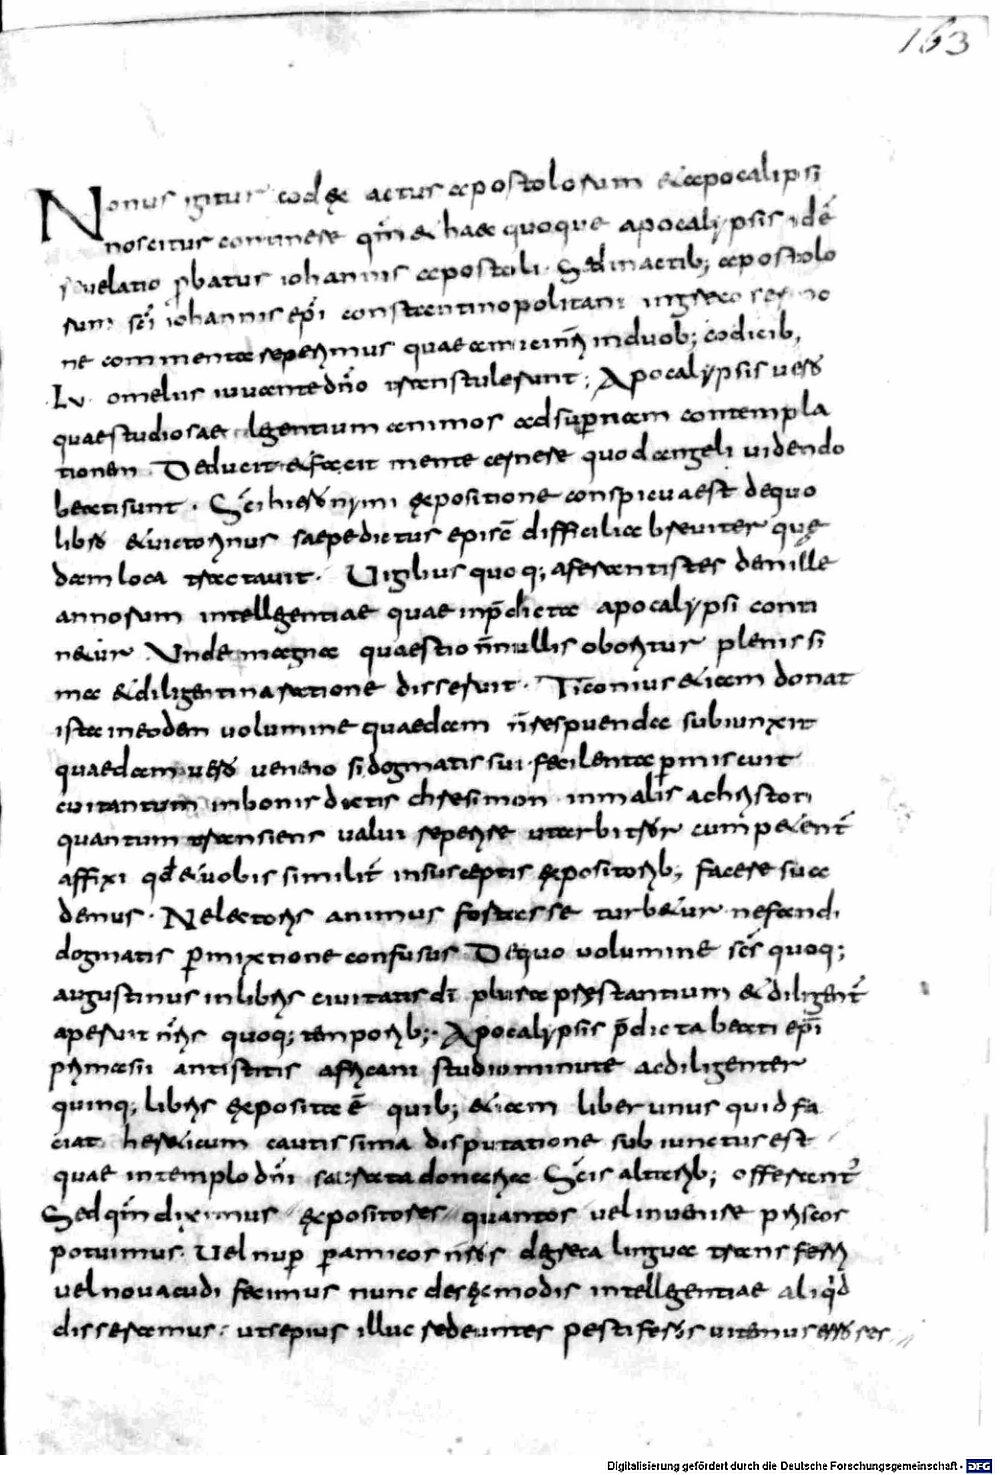 163
Nonus igitur codex actus apostolorum & apocalipsi
noscitur continere qm̄ & haec quoque apocalypsis idē
revelatio p̱batus iohannis apostoli. Sed in actib; apostolo
rum sc̄i iohannis ep̄i constantinopolitani in greco sermo
ne commenta repperimus quae amici nr̄i in duob; codicib;
Lv omeliis iuvante dn̄o transtulerunt; Apocalypsis vero
quae studiosae legentium animos ad sup̱nam contempla
tionem Deducit & facit mente cernere quod angeli videndo
beati sunt. Sc̄i hieronymi expositione conspicua est de quo
libro & victorinus saepe dictus episc̄ difficilia breviter que
dam loca tractavit. Vigilius quoq; afer antistes de mille
annorum intellegentiae quae in p̄dicta apocalypsi conti
n&ur Unde magna quaestio n̄nullis oboritur plenissi
ma & diligenti narratione disseruit. Ticonius &iam donat
ista in eodem volumine quaedam n̄ respuenda subiunxit
quaedam vero veneno si dogmatis sui feculenta p̱miscuit
cui tantum in bonis dictis chresimon in malis achriston
quantum transiens valui repperire ut arbitror cumpetent̄
affixi qđ & vobis similit̄ in susceptis expositorib; facere sua
demus. Ne lectoris animus fortasse turb&ur nefandi
dogmatis p̱mixtione confusus De quo volumine sc̄s quoq;
augustinus in libris civitatis dī plura praestantium & diligent̄
aperuit nr̄is quoq; temporib;. Apocalypsis p̄dicta beati ep̄i
primasii antistitis africani studio minute ac diligenter
quinq; libris exposita ē quib; &iam liber unus quid fa
ciat her&icum cautissima disputatione subiunctus est
quae in templo dn̄i sacrata donaria Sc̄is altarib; offerant̄
Sed qm̄ diximus expositores quantos vel invenire priscos
potuimus. Vel nup̱ p̱ amicos nr̄os de greca lingua transferri
vel nova cudi fecimus nunc de sex modis intellegentiae aliqđ
disseramus. ut sepius illuc redeuntes pestiferos vitemus errores
Digitalisierung gefördert durch die Deutsche Forschungsgemeinschaft - DFG